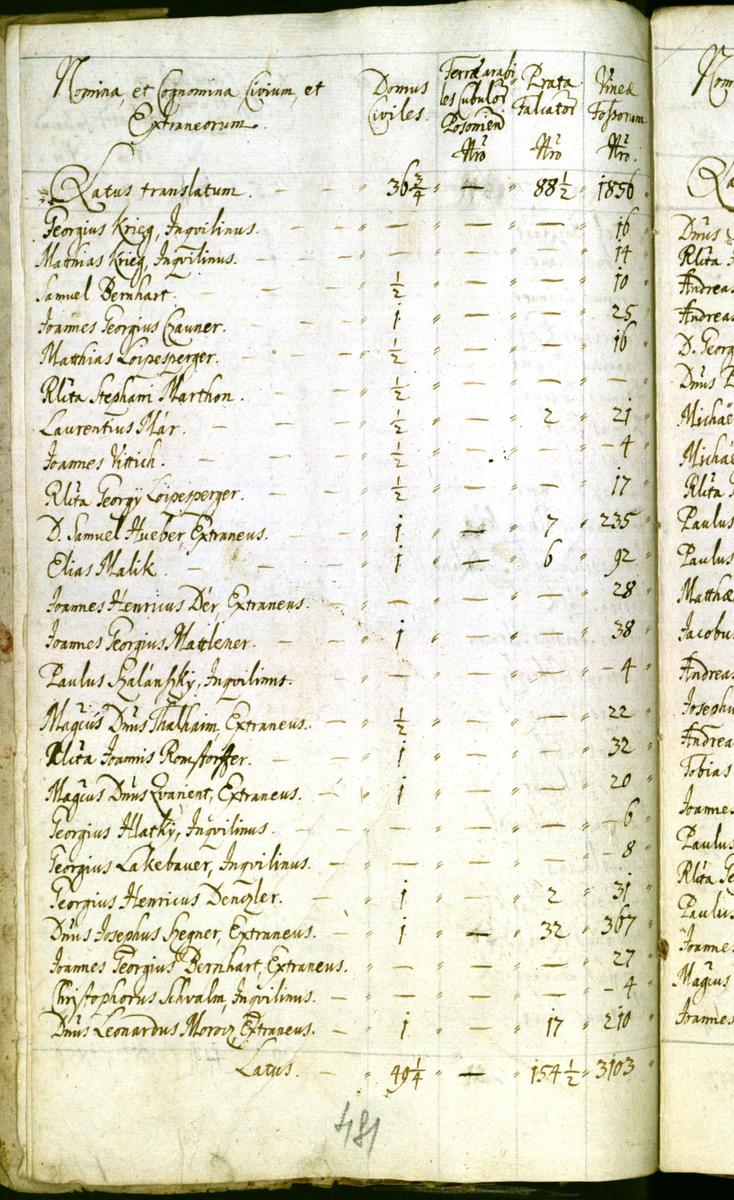 Nomina, et Cognomina Civium, et Extraneorum. Domus Civiles. Terræ arabiles Cubulor Posonien Nro Prata Falcator Nro Vineæ Fossorum Nro.
Latus translatum. — 36 3/4 " — " 88 1/2 " 1856 "
Georgius Krieg, Inqvilinus. — " — " — " — " 16
Mathias Krieg, Inqvilinus. — " — " — " — " 14
Samuel Bernhart. — 1/2 " — " — " 10
Joannes Georgius Gauner. — 1 " — " — " 25
Matthias Loipesperger. — 1/2 " — " — " 16
Rlita Stephani Marthon. — 1/2 " — " — " —
Laurentius Már. — 1/2 " — " 2 " 21
Joannes Vittich. — 1/2 " — " — " 4
Rlita Georgÿ Loipesperger. — 1/2 " — " — " 17
D. Samuel Hueber, Extraneus. — 1 " — " 7 " 235
Elias Malik. — 1 " — " 6 " 92
Joannes Henricus Dér, Extraneus. — " — " — " — " 28
Joannes Georgius Mattlener. — 1 " — " — " 38
Paulus Szalánszky, Inqvilinus. — " — " — " — " 4
Magcus Dnus Thalhaim, Extraneus. — 1/2 " — " — " 22
Rlita Joannis Romstorffer. — 1 " — " — " 32
Magcus Dnus Qvarient, Extraneus. — 1 " — " — " 20
Georgius Hlatky, Inqvilinus. — " — " — " — " 6
Georgius Lakebauer, Inqvilinus. — " — " — " — " 8
Georgius Henricus Denczler. — 1 " — " 2 " 31
Dnus Josephus Segner, Extraneus. — 1 " — " 32 " 367
Joannes Georgius Bernhart, Extraneus. — " — " — " — " 27
Christophorus Schvalm, Inqvilinus. — " — " — " — " 4
Dnus Leonardus Morocz, Extraneus. — 1 " — " 17 " 210
Latus. — 49 1/4 " — " 154 1/2 " 3103
481
Nom
La
Dnus
Rlita
Andreas
Andreas
D. Georg
Dnus
Michaë
Michaë
Rlita
Paulus
Paulus
Matthæ
Jacobu
Andreas
Josephu
Andrea
Tobias
Joannes
Paulus
Rlita Ge
Paulus
Joanne
Magcus
Joannes